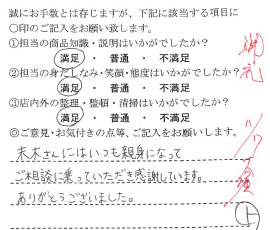 誠にお手数とは存じますが、下記に該当する項目に
○印のご記入をお願い致します。
①担当の商品知識・説明はいかがでしたか?
満足 ・ 普通 ・ 不満足
②担当の身だしなみ・笑顔・態度はいかがでしたか?
満足 ・ 普通 ・ 不満足
③店内外の整理・整頓・清掃はいかがでしたか?
満足 ・ 普通 ・ 不満足
◎ご意見・お気付きの点等、ご記入をお願いします。
末木さんにはいつも親身になって
ご相談に乗っていただき感謝しています。
ありがとうございました。
御礼
上